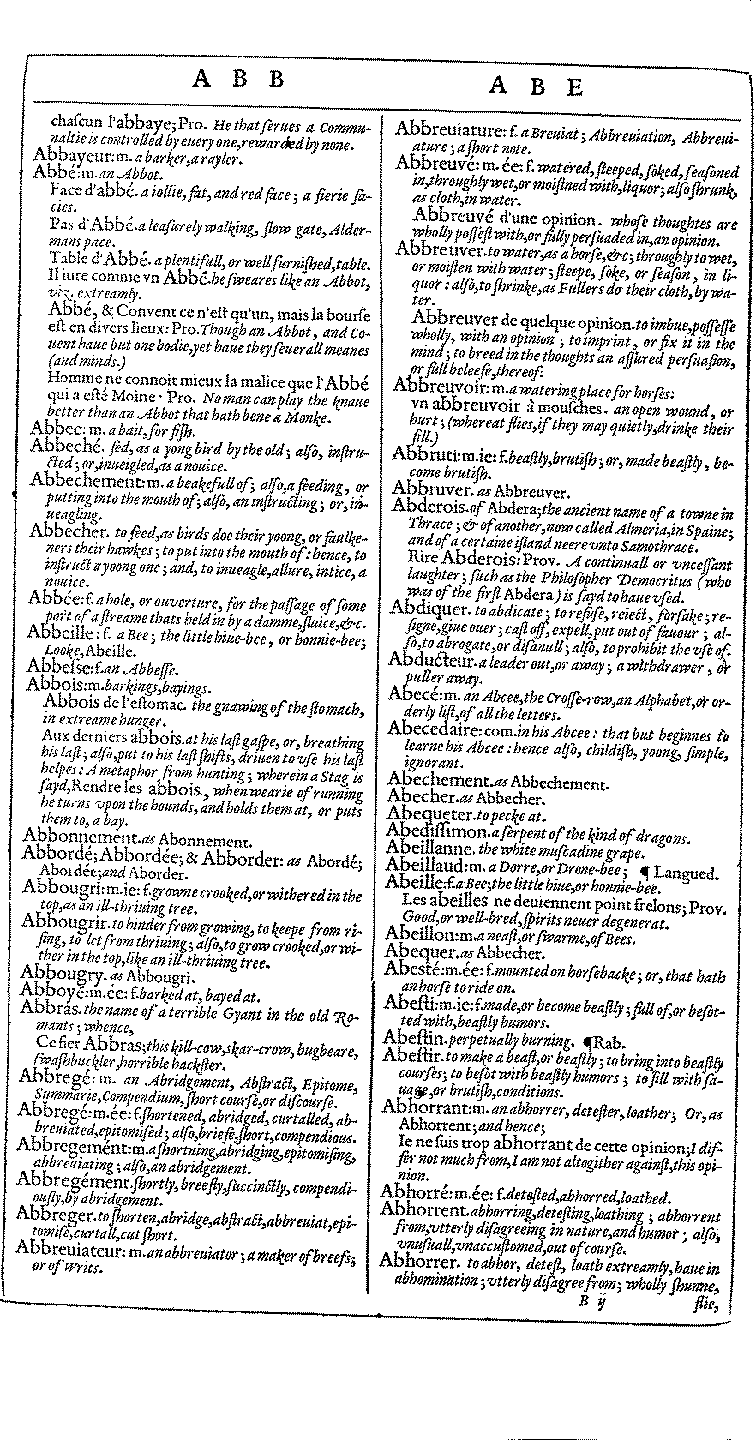 A B B
chaſcun l'abbaye; Pro. He that ſerues a Commu-
naltie is controlled by euery one, rewarded by none.
Abbayeur: m. a barker, a rayler.
Abbé: m. an Abbot.
Face d'abbé. a iollie, fat, and red face; a fierie fa-
cies.
Pas d'Abbé. a leaſurely walking, ſlow gate, Alder-
mans pace.
Table d'Abbé. a plentifull, or well furniſhed, table.
Il iure comme vn Abbé. he ſweares like an Abbot,
viz. extreamly.
Abbé, & Convent ce n'eſt qu'un, mais la bourſe
eſt en divers lieux: Pro. Though an Abbot, and Co-
uent haue but one bodie, yet haue they ſeuerall meanes
(and minds.)
Homme ne connoit mieux la malice que l'Abbé
qui a eſté Moine · Pro. No man can play the knaue
better than an Abbot that hath bene a Monke.
Abbec: m. a bait, for fiſh.
Abbeché. fed, as a yong bird by the old; alſo, inſtru-
cted; or, inueigled, as a nouice.
Abbechement: m. a beakefull of; alſo, a feeding, or
putting into the mouth of; alſo, an inſtructing; or, in-
ueagling.
Abbecher. to feed, as birds doe their yoong, or faulke-
ners their hawkes; to put into the mouth of: hence, to
inſtruct a yoong one; and, to inueagle, allure, intice, a
nouice.
Abbée: f. a hole, or ouverture, for the paſſage of ſome
part of a ſtreame thats held in by a damme, ſluice, &c.
Abbeille: f. a Bee; the little hiue-bee, or honnie-bee;
Looke, Abeille.
Abbeſſe: f. an Abbeſſe.
Abbois: m. barkings, bayings.
Abbois de l'eſtomac. the gnawing of the ſtomach,
in extreame hunger.
Aux derniers abbois. at his laſt gaſpe, or, breathing
his laſt; alſo, put to his laſt ſhifts, driuen to vſe his laſt
helpes: A metaphor from hunting; wherein a Stag is
ſayd, Rendre les abbois, when wearie of running
he turns vpon the hounds, and holds them at, or puts
them to, a bay.
Abbonnement. as Abonnement.
Abbordé; Abbordée; & Abborder: as Abordé;
Abordée; and Aborder.
Abbougri: m. ie: f. growne crooked, or withered in the
top, as an ill-thriuing tree.
Abbougrir. to hinder from growing, to keepe from ri-
ſing, to let from thriuing; alſo, to grow crooked, or wi-
ther in the top, like an ill-thriuing tree.
Abbougry. as Abbougri.
Abboyé: m. ée: f. barked at, bayed at.
Abbras. the name of a terrible Gyant in the old Ro-
mants; whence,
Ce fier Abbras; this kill-cow, skar-crow, bugbeare,
ſwaſhbuckler, horrible hackſter.
Abbregé: m. an Abridgement, Abſtract, Epitome,
Summarie, Compendium, ſhort courſe, or diſcourſe.
Abbregé: m. ée: f. ſhortened, abridged, curtalled, ab-
breuiated, epitomiſed; alſo, briefe, ſhort, compendious.
Abbregement: m. a ſhortning, abridging, epitomiſing,
abbreuiating; alſo, an abridgement.
Abbregément. ſhortly, breefly, ſuccinctly, compendi-
ouſly, by abridgement.
Abbreger. to ſhorten, abridge, abſtract, abbreuiat, epi-
tomiſe, curtall, cut ſhort.
Abbreuiateur: m. an abbreuiator; a maker of breefs;
or of writs.
A B E
Abbreuiature: f. a Breuiat; Abbreuiation, Abbreui-
ature; a ſhort note.
Abbreuvé: m. ée: f. watered, ſteeped, ſoked, ſeaſoned
in, throughly wet, or moiſtned with, liquor; alſo ſhrunk,
as cloth, in water.
Abbreuvé d'une opinion. whoſe thoughtes are
wholly poſſeſt with, or fully perſuaded in, an opinion.
Abbreuver. to water, as a horſe, &c; throughly to wet,
or moiſten with water; ſteepe, ſoke, or ſeaſon, in li-
quor: alſo, to ſhrinke, as Fullers do their cloth, by wa-
ter.
Abbreuver de quelque opinion. to imbue, poſſeſſe
wholly, with an opinion; to imprint, or fix it in the
mind; to breed in the thoughts an aſſured perſuaſion,
or full beleefe, thereof.
Abbreuvoir: m. a watering place for horſes:
vn abbreuvoir à mouſches. an open wound, or
hurt; (whereat flies, if they may quietly, drinke their
fill.)
Abbruti: m. ie: f. beaſtly, brutiſh; or, made beaſtly, be-
come brutiſh.
Abbruver. as Abbreuver.
Abderois. of Abdera; the ancient name of a towne in
Thrace; & of another, now called Almeria, in Spaine;
and of a certaine iſland neere vnto Samothrace.
Rire Abderois: Prov. A continuall or vnceſſant
laughter; ſuch as the Philoſopher Democritus (who
was of the firſt Abdera) is ſayd to haue vſed.
Abdiquer. to abdicate; to refuſe, reiect, forſake; re-
ſigne, giue ouer; caſt off, expell, put out of fauour; al-
ſo, to abrogate, or diſanull; alſo, to prohibit the vſe of.
Abducteur. a leader out, or away; a withdrawer, or
puller away.
Abecé: m. an Abcee, the Croſſe-row, an Alphabet, or or-
derly liſt, of all the letters.
Abecedaire: com. in his Abcee: that but beginnes to
learne his Abcee: hence alſo, childiſh, young, ſimple,
ignorant.
Abechement. as Abbechement.
Abecher. as Abbecher.
Abequeter. to pecke at.
Abediſſimon. a ſerpent of the kind of dragons.
Abeillanne. the white muſcadine grape.
Abeillaud: m. a Dorre, or Drone-bee; ¶ Langued.
Abeille: f. a Bee, the little hiue, or honnie-bee.
Les abeilles ne deuiennent point frelons; Prov.
Good, or well-bred, ſpirits neuer degenerat.
Abeillon: m. a neaſt, or ſwarme, of Bees.
Abequer. as Abbecher.
Abeſté: m. ée: f. mounted on horſebacke; or, that hath
an horſe to ride on.
Abeſti: m. ie: f. made, or become beaſtly; full of, or beſot-
ted with, beaſtly humors.
Abeſtin. perpetually burning. ¶Rab.
Abeſtir. to make a beaſt, or beaſtly; to bring into beaſtly
courſes; to beſot with beaſtly humors; to fill with ſa-
uage, or brutiſh, conditions.
Abhorrant: m. an abhorrer, deteſter, loather; Or, as
Abhorrent; and hence;
Ie ne ſuis trop abhorrant de cette opinion; I dif-
fer not much from, I am not altogither againſt, this opi-
nion.
Abhorré: m. ée: f. deteſted, abhorred, loathed.
Abhorrent. abhorring, deteſting, loathing; abhorrent
from, vtterly diſagreeing in nature, and humor; alſo,
vnuſuall, vnaccuſtomed, out of courſe.
Abhorrer. to abhor, deteſt, loath extreamly, haue in
abhomination; vtterly diſagree from; wholly ſhunne,
B ij flie,